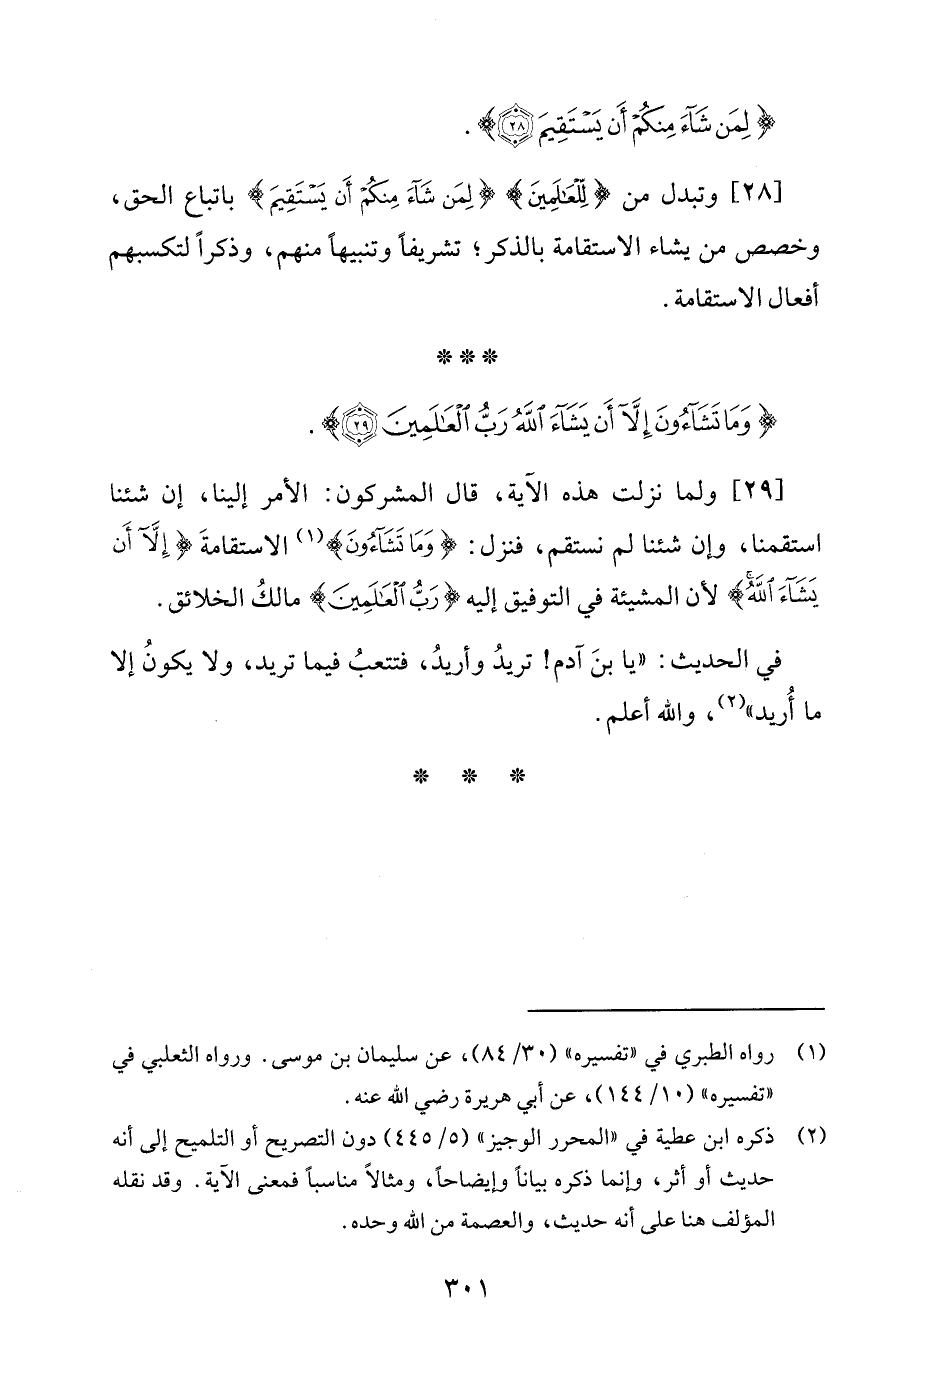 ﴿ لِمَن شَآءَ مِنكُمْ أَن يَسْتَقِيمَ ٢٨ ﴾ .
[٢٨] وتبدل من ﴿ لِّلْعَٰلَمِينَ ﴾ ﴿ لِمَن شَآءَ مِنكُمْ أَن يَسْتَقِيمَ ﴾ باتباع الحق،
وخصص من يشاء الاستقامة بالذكر؛ تشريفاً وتنبيهاً منهم، وذكراً لتكسبهم
أفعال الاستقامة .
* * *
﴿ وَمَا تَشَآءُونَ إِلَّآ أَن يَشَآءَ ٱللَّهُ رَبُّ ٱلْعَٰلَمِينَ ٢٩ ﴾ .
[٢٩] ولما نزلت هذه الآية، قال المشركون: الأمر إلينا، إن شئنا
استقمنا، وإن شئنا لم نستقم، فنزل: ﴿ وَمَا تَشَآءُونَ ﴾(١) الاستقامةَ ﴿ إِلَّآ أَن
يَشَآءَ ٱللَّهُ ﴾ لأن المشيئة في التوفيق إليه ﴿ رَبُّ ٱلْعَٰلَمِينَ ﴾ مالكُ الخلائق .
في الحديث: «يا بنَ آدم! تريدُ وأريدُ، فتتعبُ فيما تريد، ولا يكونُ إلا
ما أُريد»(٢)، والله أعلم .
* * *
(١) رواه الطبري في «تفسيره» (٣٠/ ٨٤)، عن سليمان بن موسى . ورواه الثعلبي في
«تفسيره» (١٠/ ١٤٤)، عن أبي هريرة رضي الله عنه .
(٢) ذكره ابن عطية في «المحرر الوجيز» (٥/ ٤٤٥) دون التصريح أو التلميح إلى أنه
حديث أو أثر، وإنما ذكره بياناً وإيضاحاً، ومثالاً مناسباً فمعنى الآية . وقد نقله
المؤلف هنا على أنه حديث، والعصمة من الله وحده .
٣٠١